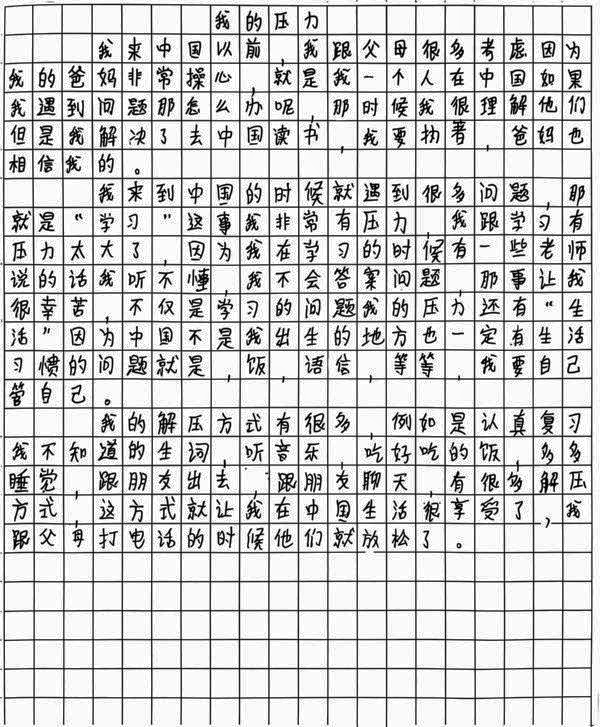 我的压力
我来中国以前，我跟父母很多考虑因为
我的爸妈非常操心，就是我一个人在中国如果
我遇到问题那怎么办呢，那时候我很理解他们
但是我解决了去中国读书，我要执著，爸妈也
相信我的。
我来到中国的时候就遇到很多问题，那
就是“学习”这事我非常有压力，我跟学习有
压力太大了，因为我在学习的时候有一些老师
说的话我听不懂，我不会答案问题，那事让我
很幸苦，不仅是学习的问题我的压力还有“生
活”因为中国不是我出生的地方也一定有生活
习惯的问题就是，饭，语信，等等，我要自己
管自己。
我的解压方式有很多，例如是认真复习
我不知道的生词，听音乐，吃好吃的饭，多多
睡觉，跟朋友出去，跟朋友聊天，有很多解压
方式，这方式就让我在中国生活很享受了，我
跟父母打电话的时候他们就放松了。